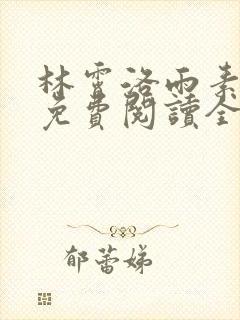 林霄洛雨素
免費閱讀全
郁蕾娣